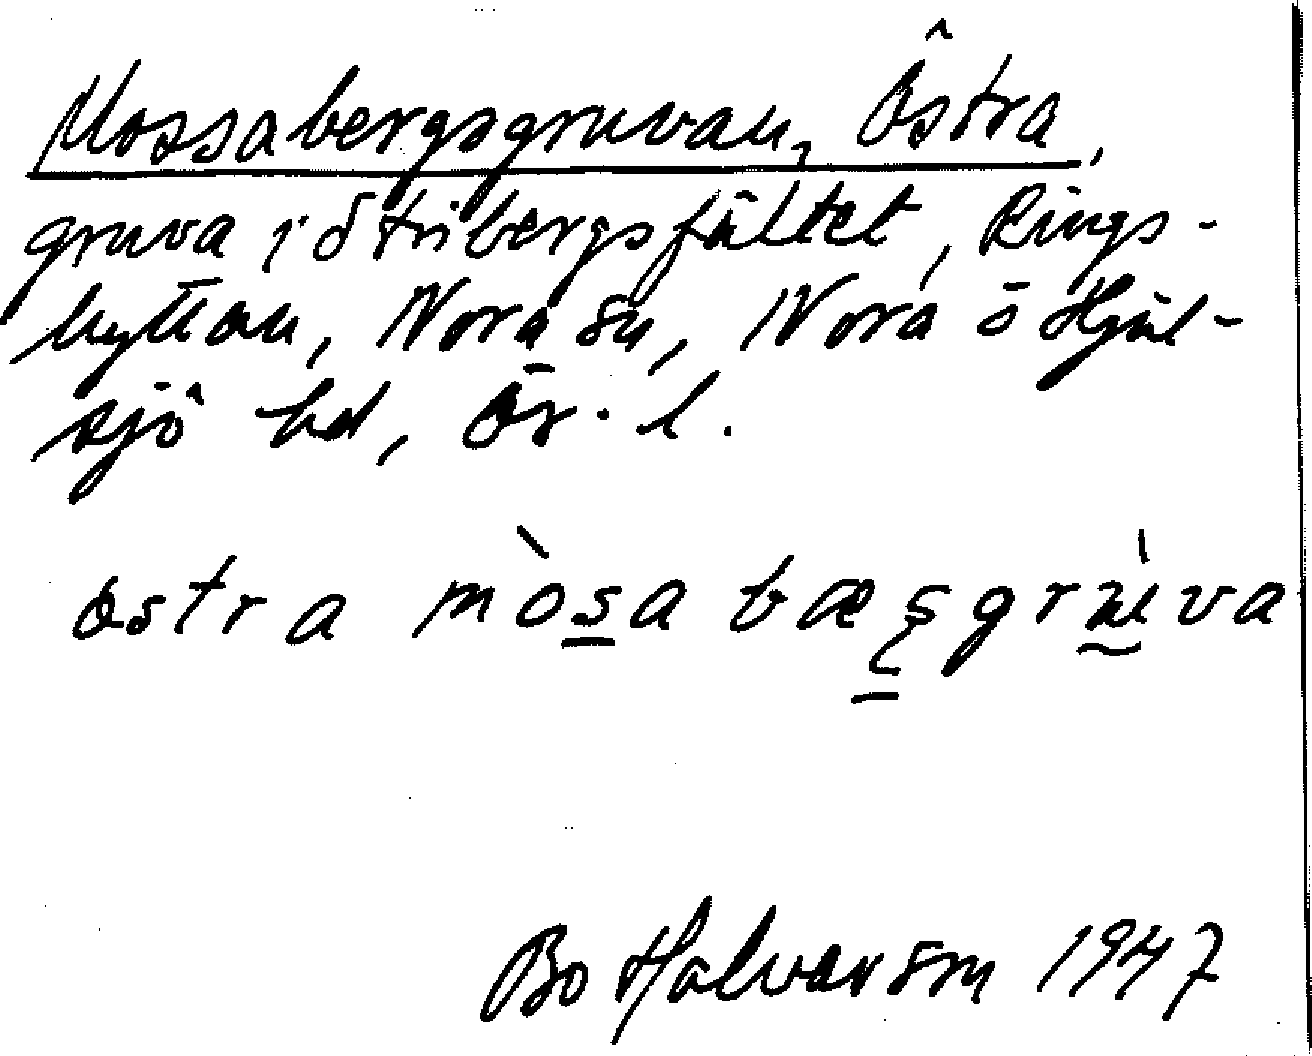 Mossabergsgruvan, Östra,
gruva i Stribergsfältet, Rings-
hyttan, Nora sn, Nora o Hjul-
sjö hd, Ör. l.
östra mòsa bæʂgrʉ̀va
Bo Halvarson 1947